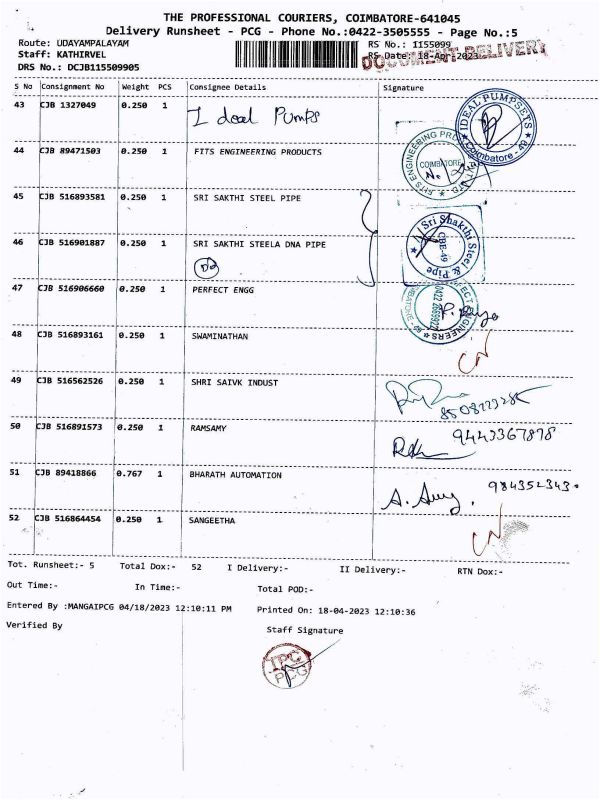 THE PROFESSIONAL COURIERS, COIMBATORE-641045
Delivery Runsheet - PCG - Phone No.:0422-3505555 - Page No.:5
Route: UDAYAMPALAYAM RS No.: I155099
Staff: KATHIRVEL RS Date: 18-Apr-2023
DOCUMENT DELIVERY
DRS No.: DCJB115509905
S No Consignment No Weight PCS Consignee Details Signature
43 CJB 1327049 0.250 1 Ideal Pumps
IDEAL PUMPSETS Coimbatore - 49
44 CJB 89471503 0.250 1 FITS ENGINEERING PRODUCTS
FITS ENGINEERING COIMBATORE
45 CJB 516893581 0.250 1 SRI SAKTHI STEEL PIPE
46 CJB 516901887 0.250 1 SRI SAKTHI STEELA DNA PIPE
Sri Shakthi Steel & Pipe CBE-49
47 CJB 516906660 0.250 1 PERFECT ENGG
48 CJB 516893161 0.250 1 SWAMINATHAN
49 CJB 516562526 0.250 1 SHRI SAIVK INDUST
50 CJB 516891573 0.250 1 RAMSAMY 9443367878
51 CJB 89418866 0.767 1 BHARATH AUTOMATION
52 CJB 516864454 0.250 1 SANGEETHA
Tot. Runsheet:- 5 Total Dox:- 52 I Delivery:- II Delivery:- RTN Dox:-
Out Time:- In Time:- Total POD:-
Entered By :MANGAIPCG 04/18/2023 12:10:11 PM Printed On: 18-04-2023 12:10:36
Verified By Staff Signature
TPC
PCG